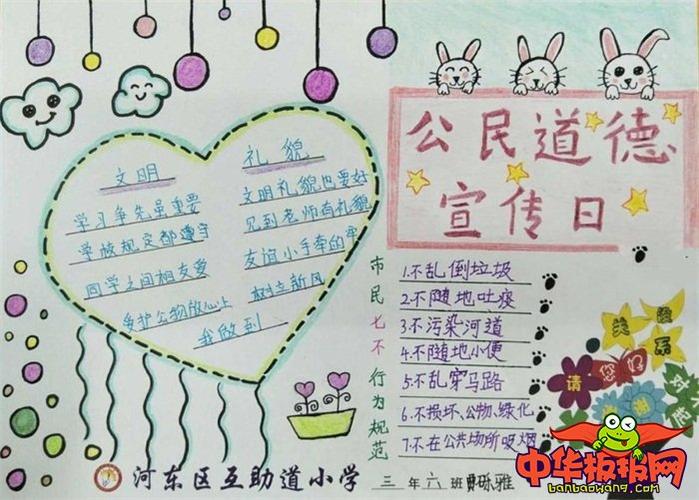 公民道德
宣传日
文明
学习争先虽重要
学校规定都遵守
同学之间相友爱
爱护公物放心上
礼貌
文明礼貌也要好
见到老师有礼貌
友谊小手牵的牢
树立新风
我做到
市民七不行为规范
1.不乱倒垃圾
2.不随地吐痰
3.不污染河道
4.不随地小便
5.不乱穿马路
6.不损坏、公物、绿化
7.不在公共场所吸烟
请
您好
谢
美
没关系
对
河东区互助道小学
三年六班
雅
中华板报网
banbaowang.com